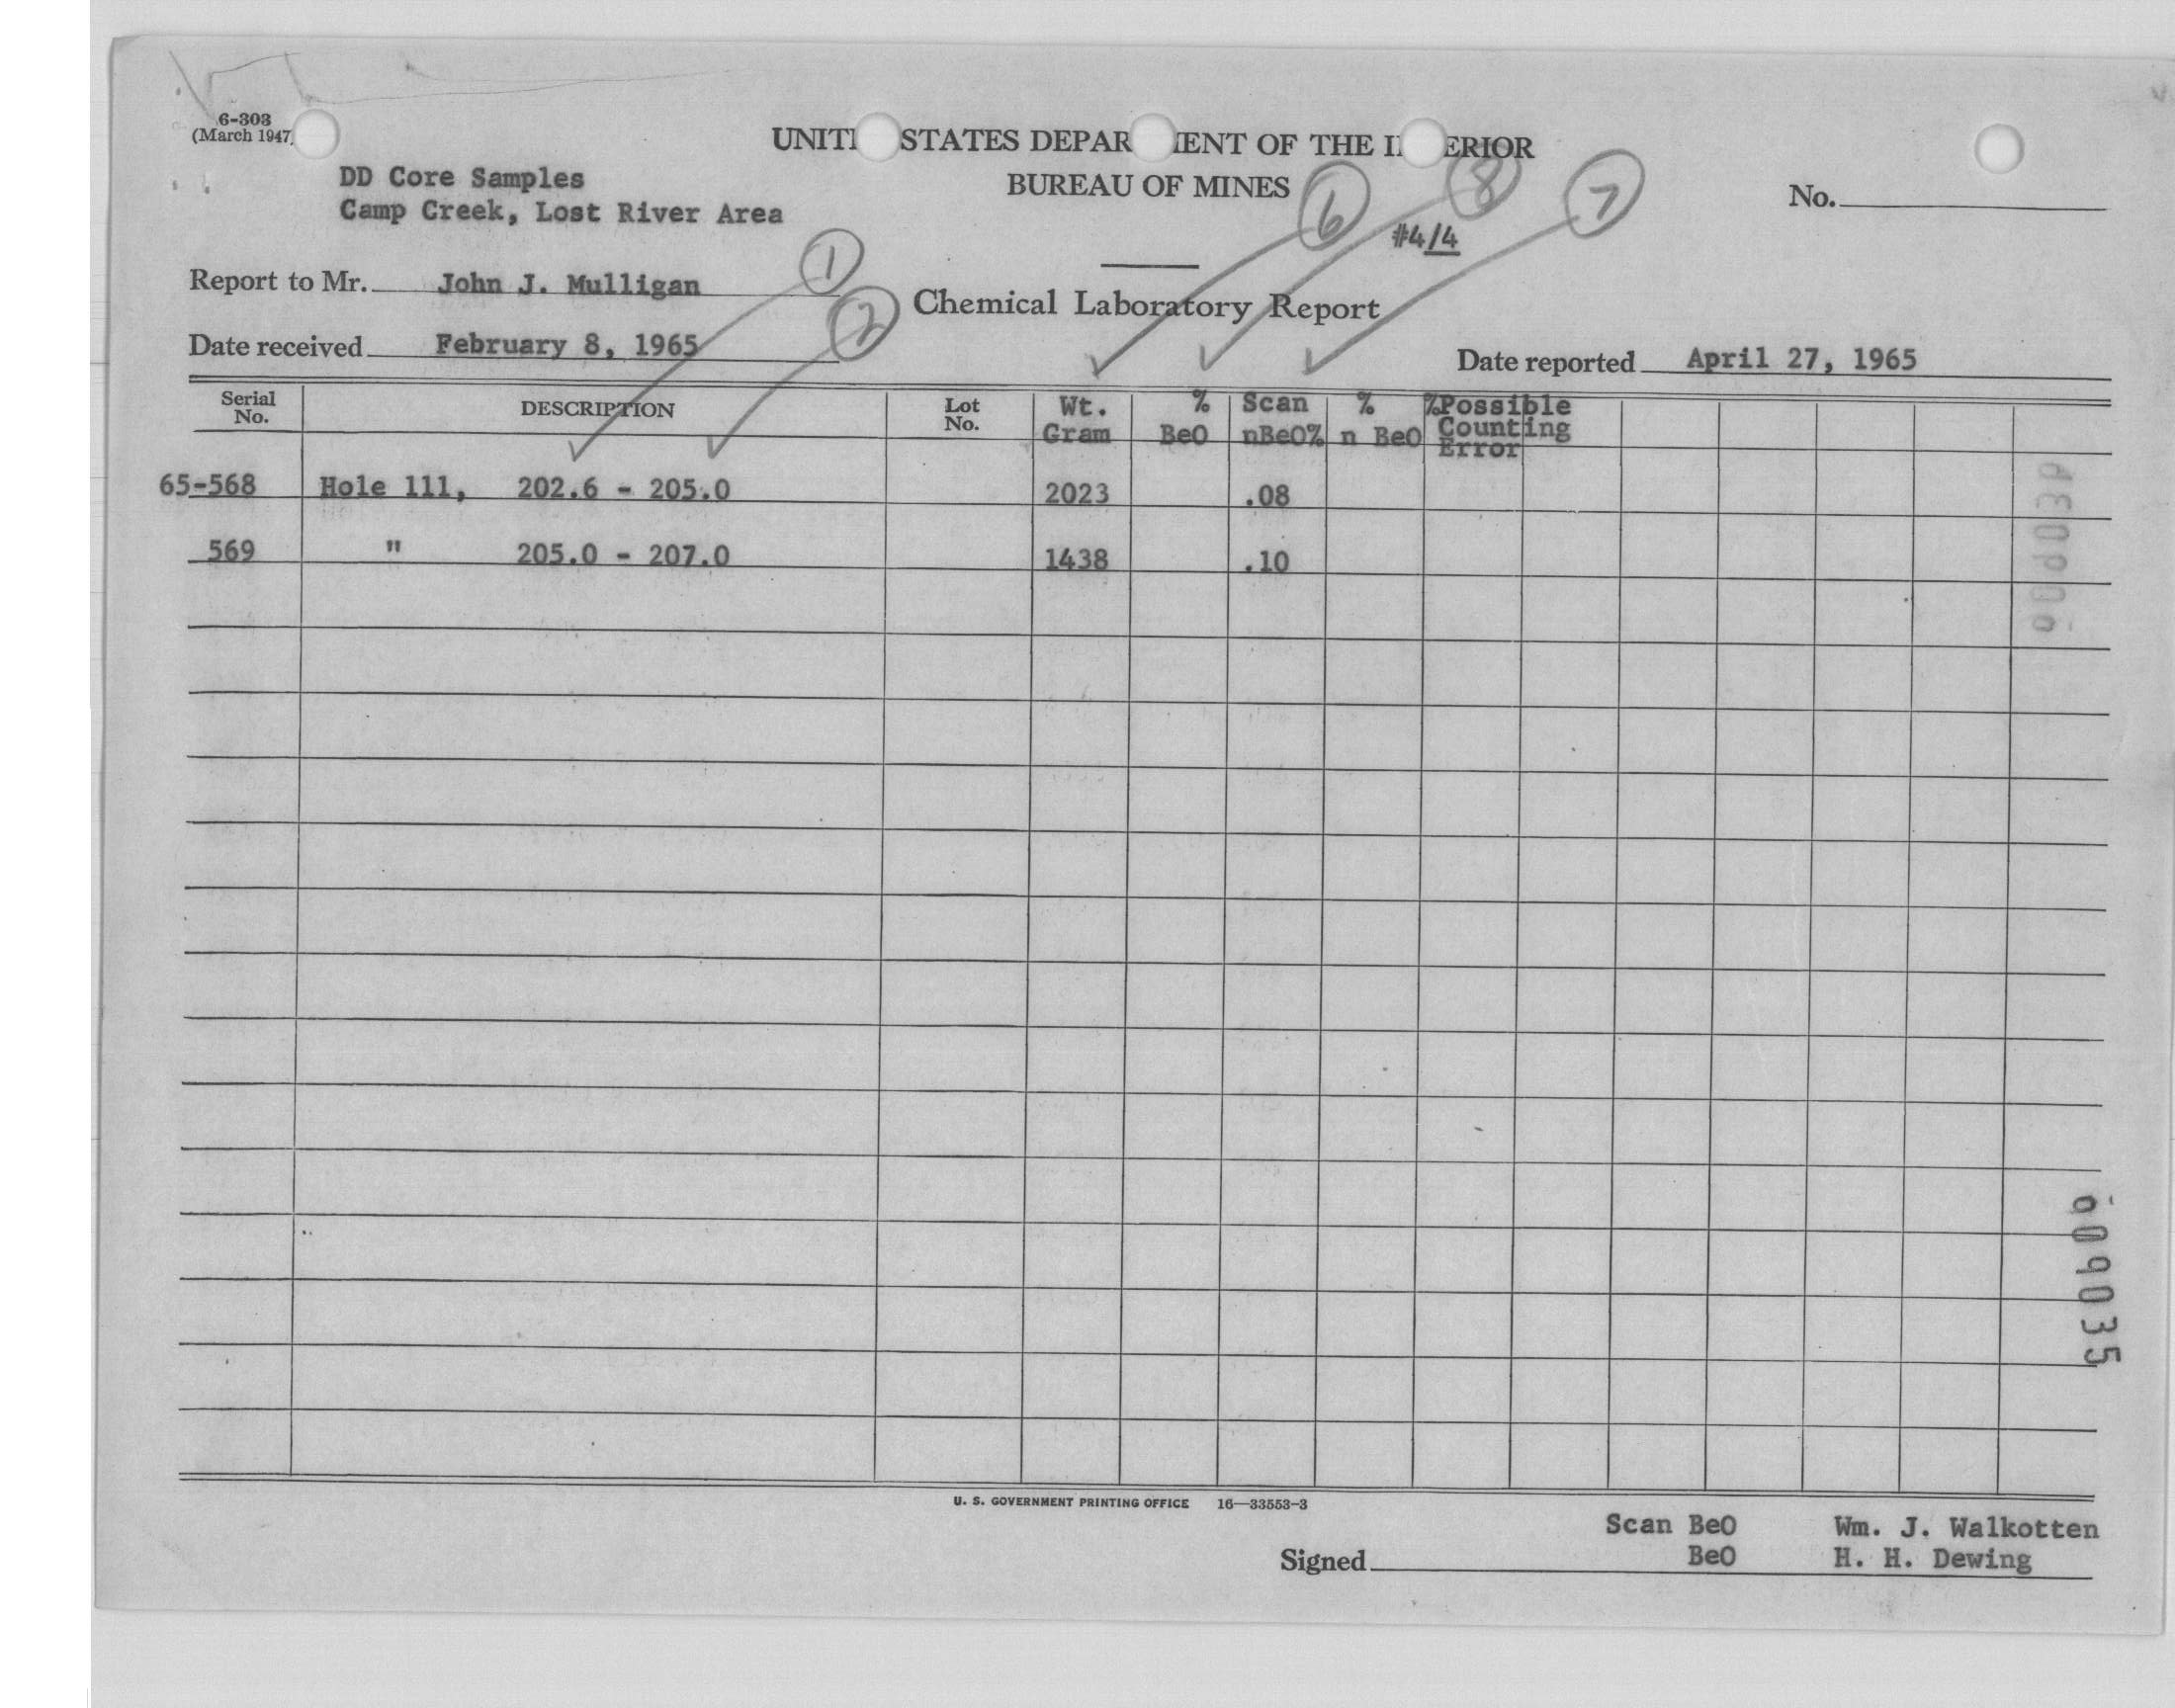 6-303
(March 1947)
UNITED STATES DEPARTMENT OF THE INTERIOR
BUREAU OF MINES
No.
DD Core Samples
Camp Creek, Lost River Area
1
6
8
7
#4/4
Report to Mr. John J. Mulligan
2
Chemical Laboratory Report
Date received February 8, 1965
Date reported April 27, 1965
Serial No. DESCRIPTION Lot No. Wt. Gram % BeO Scan nBeO% % n BeO %Possible Counting Error
65-568 Hole 111, 202.6 - 205.0 2023 .08
569 " 205.0 - 207.0 1438 .10
009035
U. S. GOVERNMENT PRINTING OFFICE 16—33553-3
Scan BeO Wm. J. Walkotten
Signed BeO H. H. Dewing